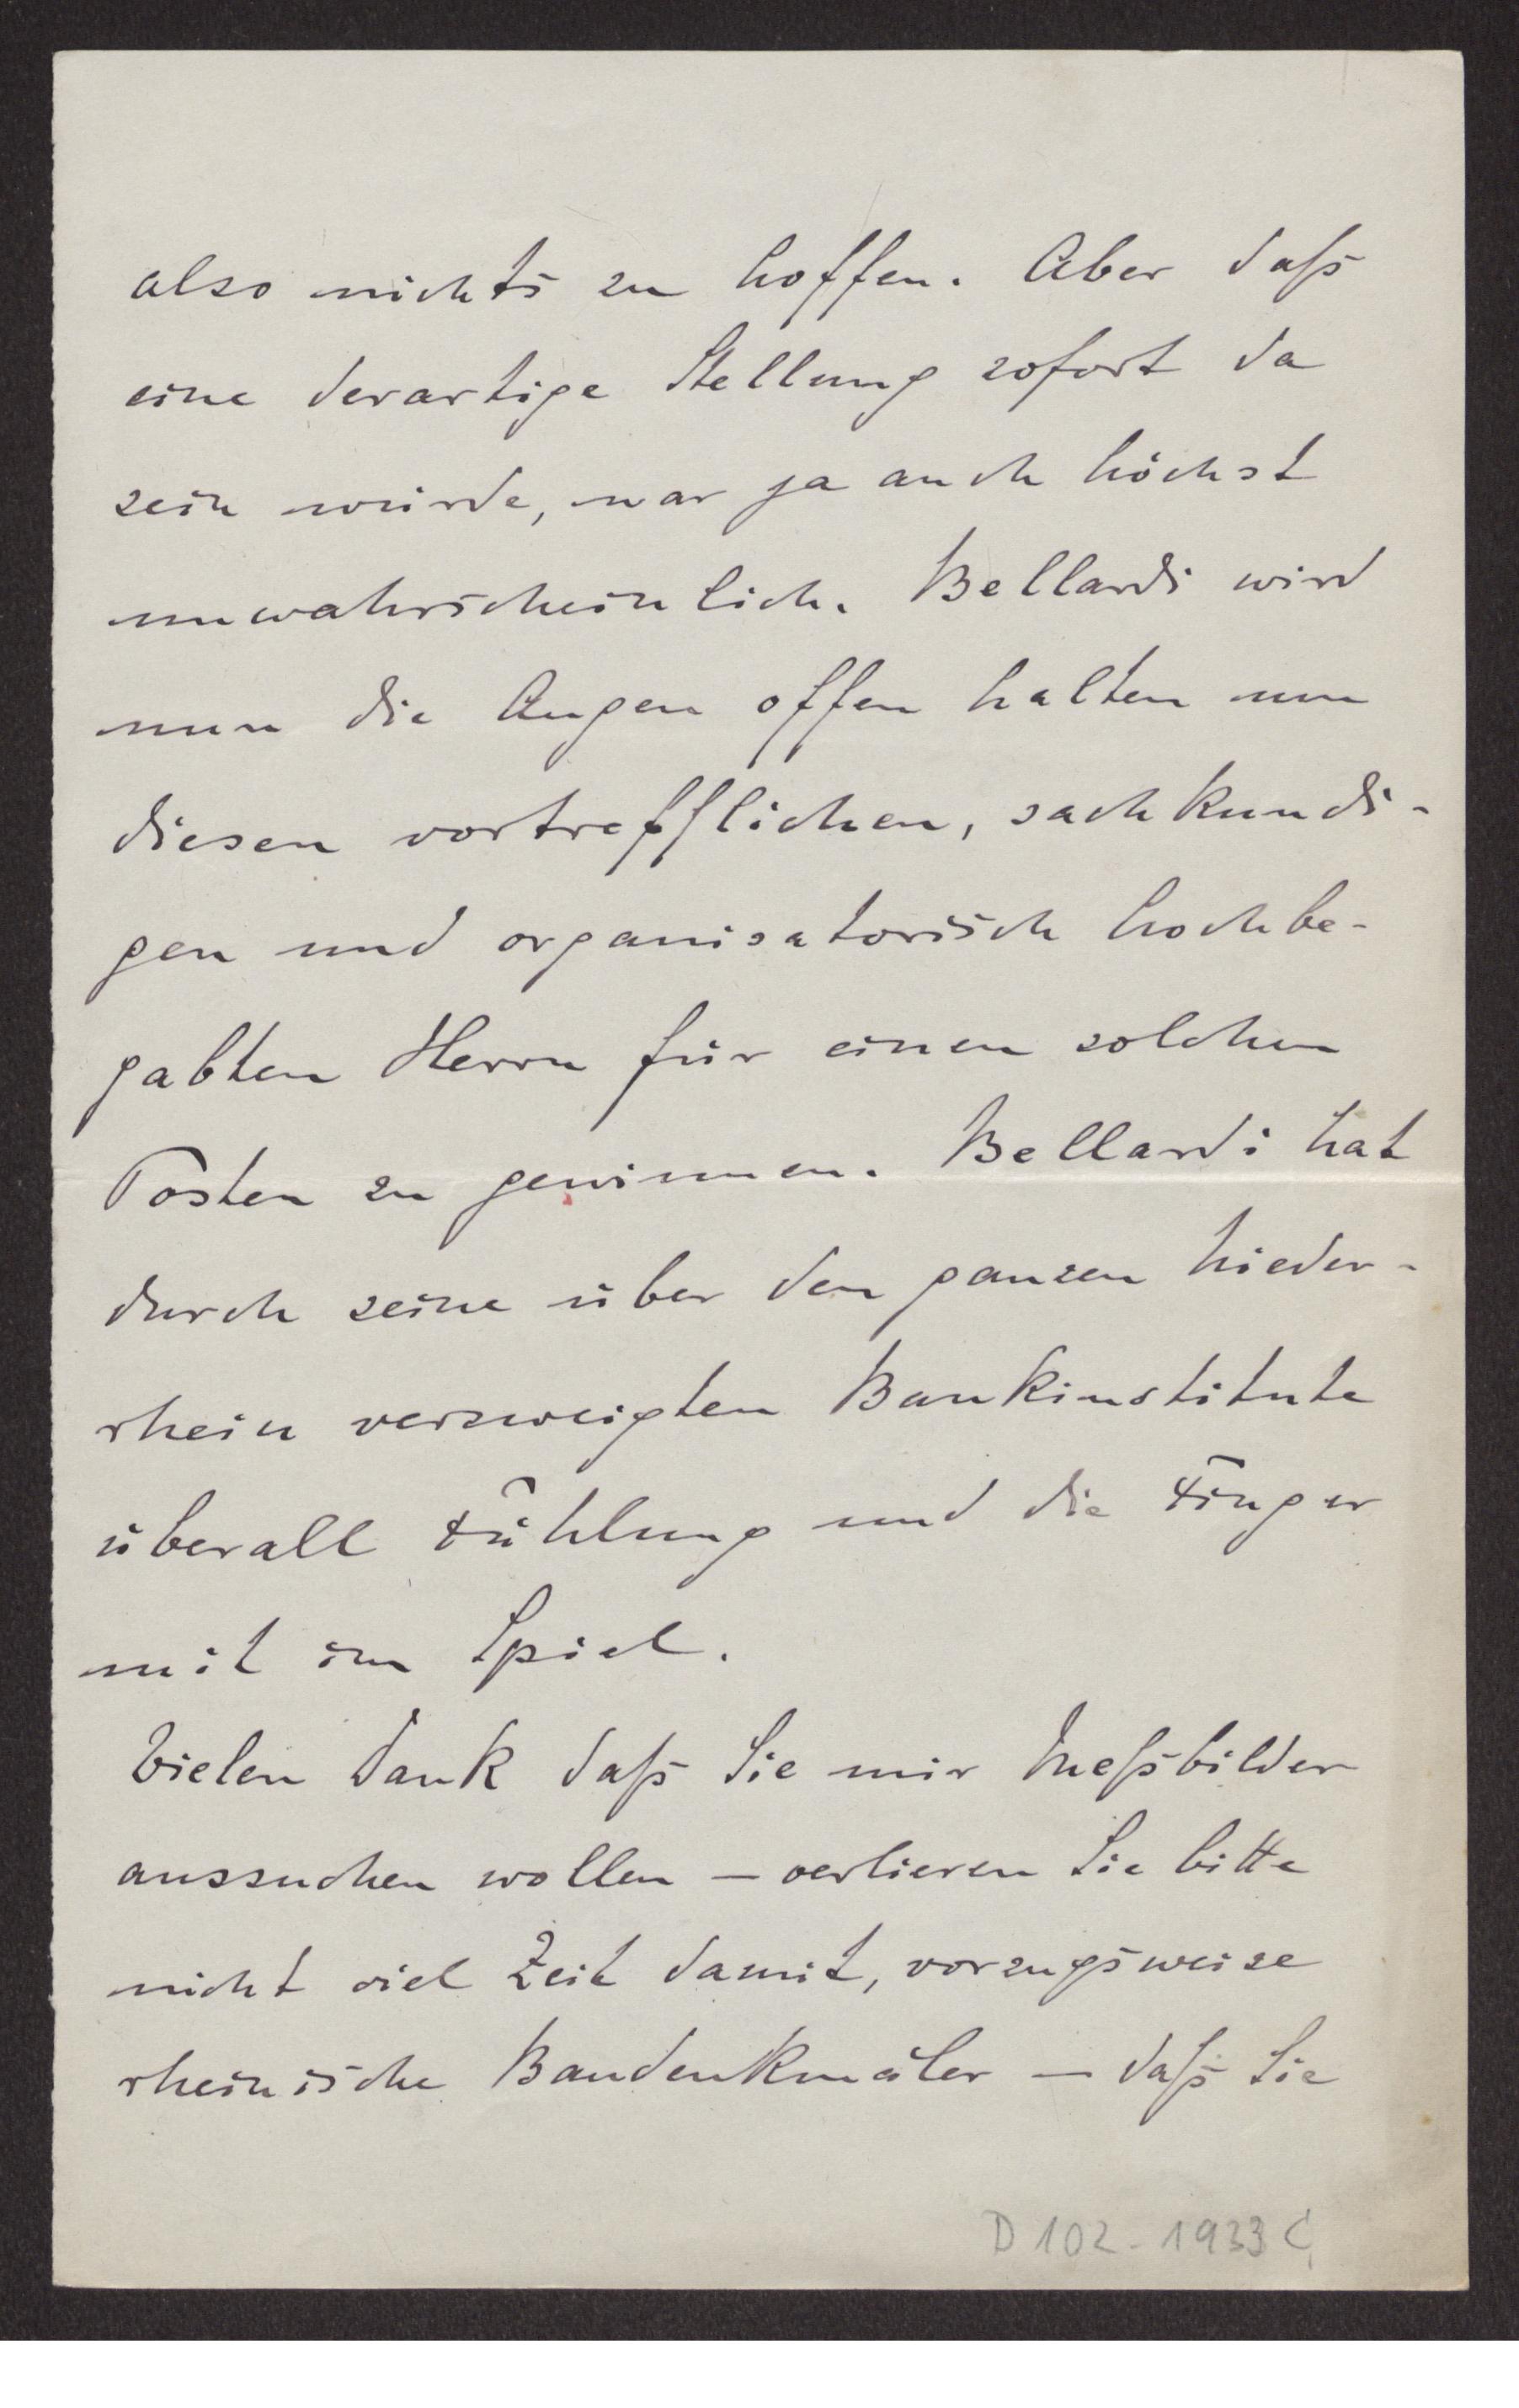 also nichts zu hoffen. Aber daß
eine derartige Stellung sofort da
sein würde, war ja auch höchst
unwahrscheinlich. Bellardi wird
nun die Augen offen halten um
diesen vortrefflichen, sachkundi-
gen und organisatorisch hochbe-
gabten Herrn für einen solchen
Posten zu gewinnen. Bellardi hat
durch seine über den ganzen Nieder-
rhein verzweigten Bankinstitute
überall Fühlung und die Finger
mit im Spiel.
Vielen Dank daß Sie mir Meßbilder
aussuchen wollen – verlieren Sie bitte
nicht viel Zeit damit, vorzugsweise
rheinische Baudenkmäler – daß Sie
D 102-1933 C